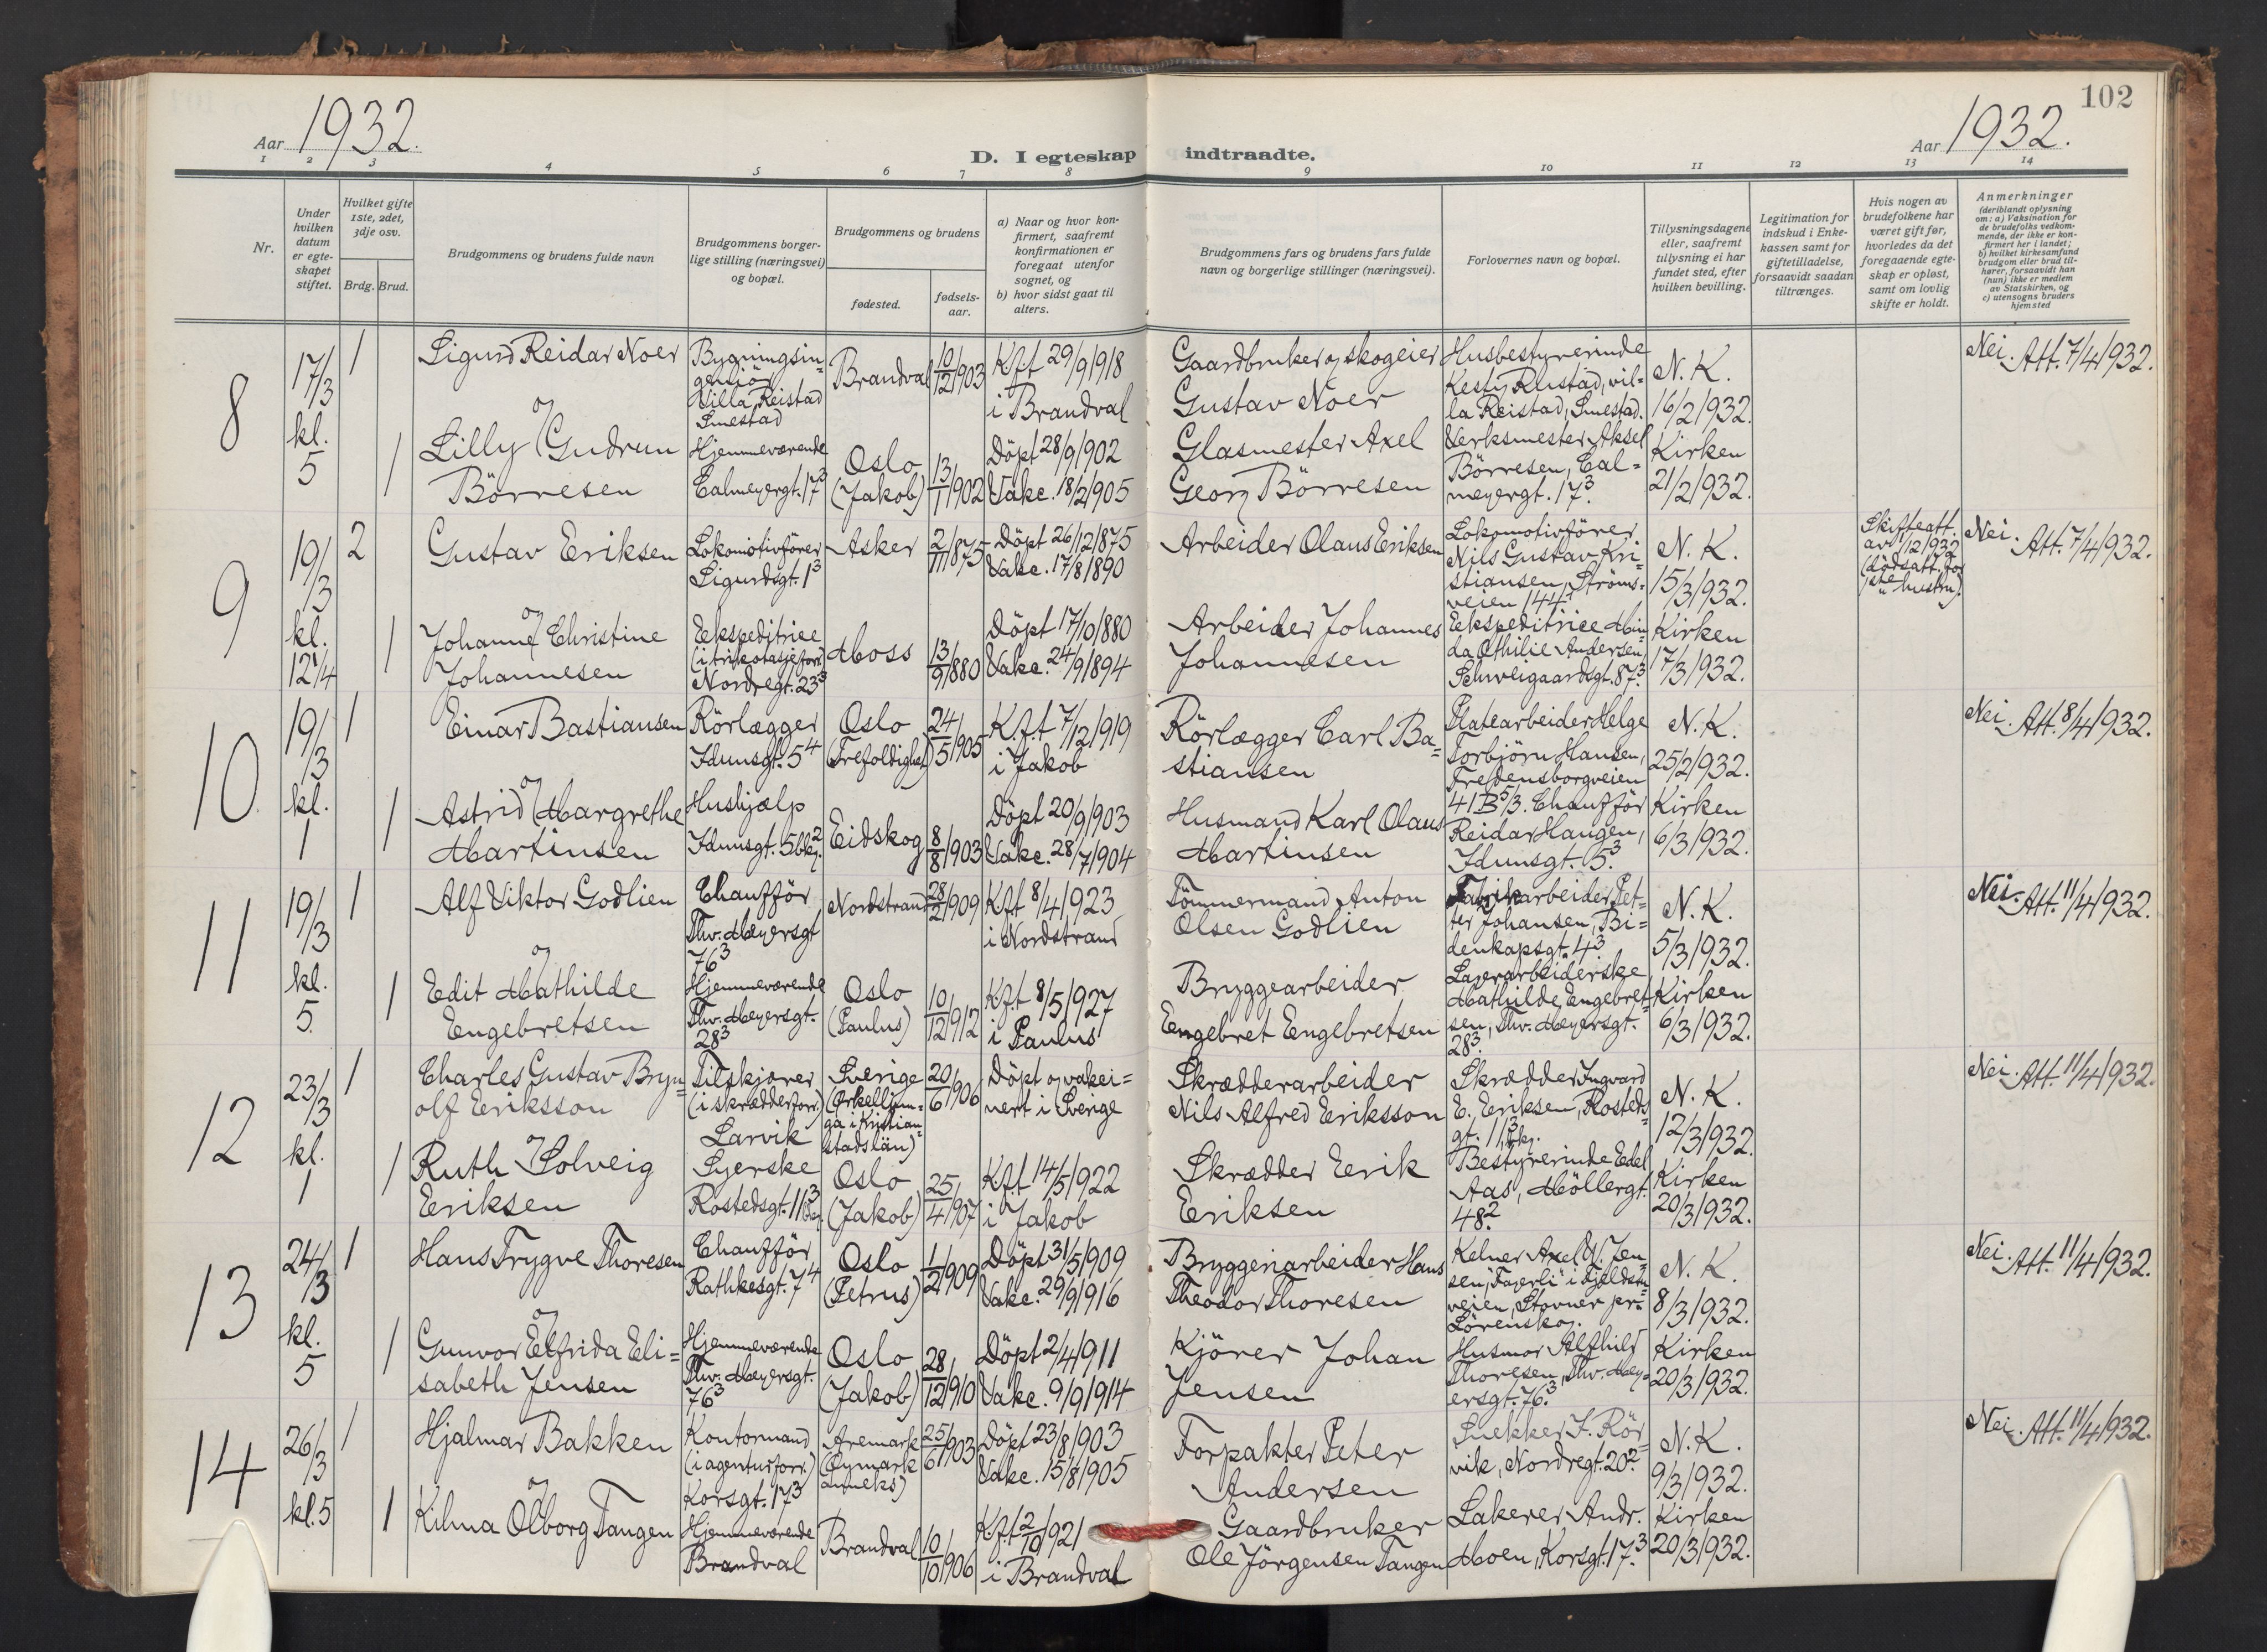 102
Aar 1932.
Aar 1932.
D. I egteskap indtraadte.
1 2 3 4 5 6 7 8 9 10 11 12 13 14
Nr.
Under hvilken datum er egte-skapet stiftet.
Hvilket gifte 1ste, 2det, 3dje osv.
Brdg. Brud.
Brudgommens og brudens fulde navn
Brudgommens borger-lige stilling (næringsvei) og bopæl.
Brudgommens og brudens
fødested.
fødsels-aar.
a) Naar og hvor kon-firmert, saafremt konfirmationen er foregaat utenfor sognet, og
b) hvor sidst gaat til alters.
Brudgommens fars og brudens fars fulde navn og borgerlige stillinger (næringsvei).
Forlovernes navn og bopæl.
Tillysningsdagene eller, saafremt tillysning ei har fundet sted, efter hvilken bevilling.
Legitimation for indskud i Enke-kassen samt for giftetilladelse, forsaavidt saadan tiltrænges.
Hvis nogen av brudefolkene har været gift før, hvorledes da det foregaaende egte-skap er opløst, samt om lovlig skifte er holdt.
Anmerkninger
(deriblandt oplysning om: a) Vaksination for de brudefolks vedkom-mende, der ikke er kon-firmert her i landet;
b) hvilket kirkesamfund brudgom eller brud til-hører, forsaavidt han (hun) ikke er medlem av Statskirken, og
c) utensogns bruders hjemsted
8
17/3 kl. 5
1
Sigurd Reidar Noer
Bygningsin-geniör
Villa Reistad
Smestad
Brandval
10/12 1903
Kft 29/9 1918
i Brandval
Gaardbruker og skogeier
Gustav Noer
Husbestyrerinde
Kesty Rustad, vil-
la Reistad, Smestad.
N. K.
16/2 1932.
Nei. Att. 7/4 1932.
og
1
Lilly Gudrun
Börresen
Hjemmeværende
Calmeyergt. 17³
Oslo
(Jakob)
13/1 1902
Döpt 28/9 1902
Vakc. 18/2 1905
Glasmester Axel
Georg Börresen
Verksmester Aksel
Börresen, Cal-
meyergt. 17³.
Kirken
21/2 1932.
9
19/3 kl. 12 1/4
2
Gustav Eriksen
Lokomotivförer
Sigurdsgt. 1³
Asker
2/11 1875
Döpt 26/12 1875
Vakc. 17/8 1890
Arbeider Olaus Eriksen
Lokomotivförer
Nils Gustav Kri-
stiansen, Ströms-
veien 144
N. K.
15/3 1932.
Skifteatt.
av 1/12 1932
(dödsatt. for
1ste hustru).
Nei. Att. 7/4 1932.
og
1
Johanne Christine
Johannesen
Ekspeditrice
(i trikotasjeforr.)
Nordregt. 23³
Moss
13/9 1880
Döpt 17/10 1880
Vakc. 24/9 1894
Arbeider Johannes
Johannesen
Ekspeditrice Min-
da Othilie Andersen,
Schweigaardsgt. 87³.
Kirken
17/3 1932.
10.
19/3 kl. 1
1
Einar Bastiansen
Rörlægger
Idunsgt. 5⁴
Oslo
(Trefoldighet)
24/5 1905
Kft 7/12 1919
i Jakob
Rörlægger Carl Ba-
stiansen
Platearbeider Helge
Torbjörn Hansen,
Fredensborgveien
41B 5/3. Chaufför
N. K.
25/2 1932.
Nei. Att. 8/4 1932.
og
1
Astrid Margrethe
Martinsen
Hushjælp
Idunsgt. 5 bkg.²
Eidskog
8/8 1903
Döpt 20/9 1903
Vakc. 28/7 1904
Husmand Karl Olaus
Martinsen
Reidar Haugen,
Idunsgt. 5³.
Kirken
6/3 1932.
11
19/3 kl. 5.
1
Alf Viktor Godlien
Chaufför
Thv. Meyersgt
76³
Nordstrand
28/2 1909
Kft 8/4 1923
i Nordstrand
Tömmermand Anton
Olsen Godlien
Fabrikarbeider Pet-
ter Johansen, Bi-
denkapsgt. 4³.
N. K.
5/3 1932.
Nei. Att. 11/4 1932.
og
1
Edit Mathilde
Engebretsen
Hjemmeværende
Thv. Meyersgt.
28³
Oslo
(Paulus)
10/12 1912
Kft 8/5 1927
i Paulus
Bryggearbeider
Engebret Engebretsen
Lagerarbeiderske
Mathilde Engebret-
sen, Thv. Meyersgt.
28³.
Kirken
6/3 1932.
12
23/3 kl. 1
1
Charles Gustav Bryn-
olf Eriksson
Tilskjærer
(i skrædderforr.)
Larvik
Sverige
(Örkelljun-
ga i Kristian-
stadslän)
20/6 1906
Döpt og vakci-
nert i Sverige
Skrædderarbeider
Nils Alfred Eriksson
Skrædder Ingvard
E. Eriksen, Rosteds-
gt. 11³ bkg.
N. K.
12/3 1932.
Nei. Att. 11/4 1932.
og
1
Ruth Solveig
Eriksen
Syerske
Rostedsgt. 11³ bkg.
Oslo
(Jakob)
25/4 1907
Kft 14/5 1922
i Jakob
Skrædder Erik
Eriksen
Bestyrerinde Edel
Aas, Möllergt.
48².
Kirken
20/3 1932.
13
24/3 kl. 5
1
Hans Trygve Thoresen
Chaufför
Rathkesgt. 7⁴
Oslo
(Petrus)
1/2 1909
Döpt 31/5 1909
Vakc. 29/9 1916
Bryggeriarbeider Hans
Theodor Thoresen
Kelner Axel W. Jen-
sen, "Fagerli" i Fjeldstu-
veien, Stovner pr.
Lörenskog.
N. K.
8/3 1932.
Nei. Att. 11/4 1932.
og
1
Gunvor Elfrida Eli-
sabeth Jensen
Hjemmeværende
Thv. Meyersgt.
76³
Oslo
(Jakob)
28/12 1910
Döpt 2/4 1911
Vakc. 9/9 1914
Kjörer Johan
Jensen
Husmor Alfhild
Thoresen, Thv. Mey-
ersgt. 76³.
Kirken
20/3 1932.
14
26/3 kl. 5
1
Hjalmar Bakken
Kontormand
(i agenturforr.)
Korsgt. 17³
Aremark
(Öymark
anneks)
25/6 1903
Döpt 23/8 1903
Vakc. 15/8 1905
Forpakter Peter
Andersen
Snekker J. Rör-
vik, Nordregt. 20².
N. K.
9/3 1932.
Nei. Att. 11/4 1932.
og
1
Kilma Olborg Tangen
Hjemmeværende
Brandval
Brandval
10/10 1906
Kft 2/10 1921
i Brandval
Gaardbruker
Ole Jörgensen Tangen
Lakerer Andr.
Moen, Korsgt. 17³.
Kirken
20/3 1932.